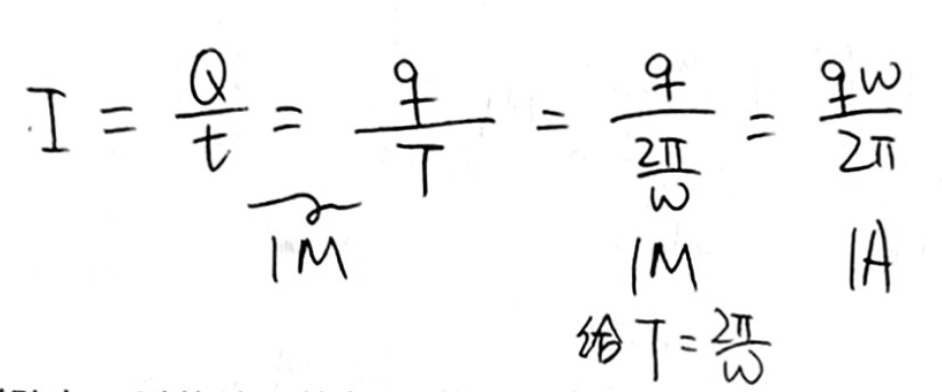 I = Q/t = q/T = q/(2π/ω) = qω/2π
1M 1M 1A
给 T = 2π/ω